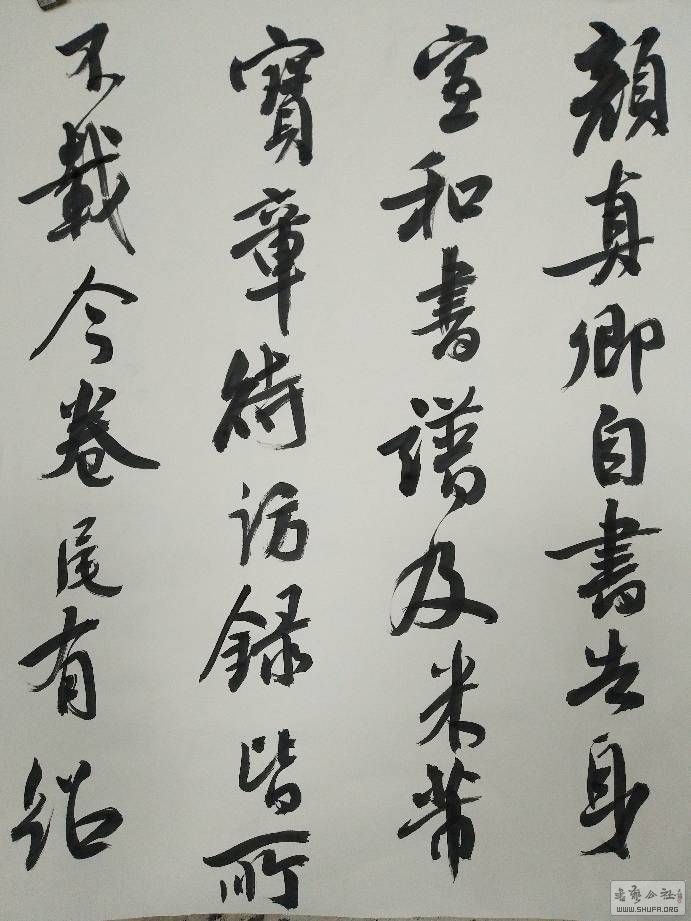 顔真卿自書告身
宣和書譜及米芾
寶章待訪録皆所
不載今卷尾有紹
书艺公社
WWW.SHUFA.ORG